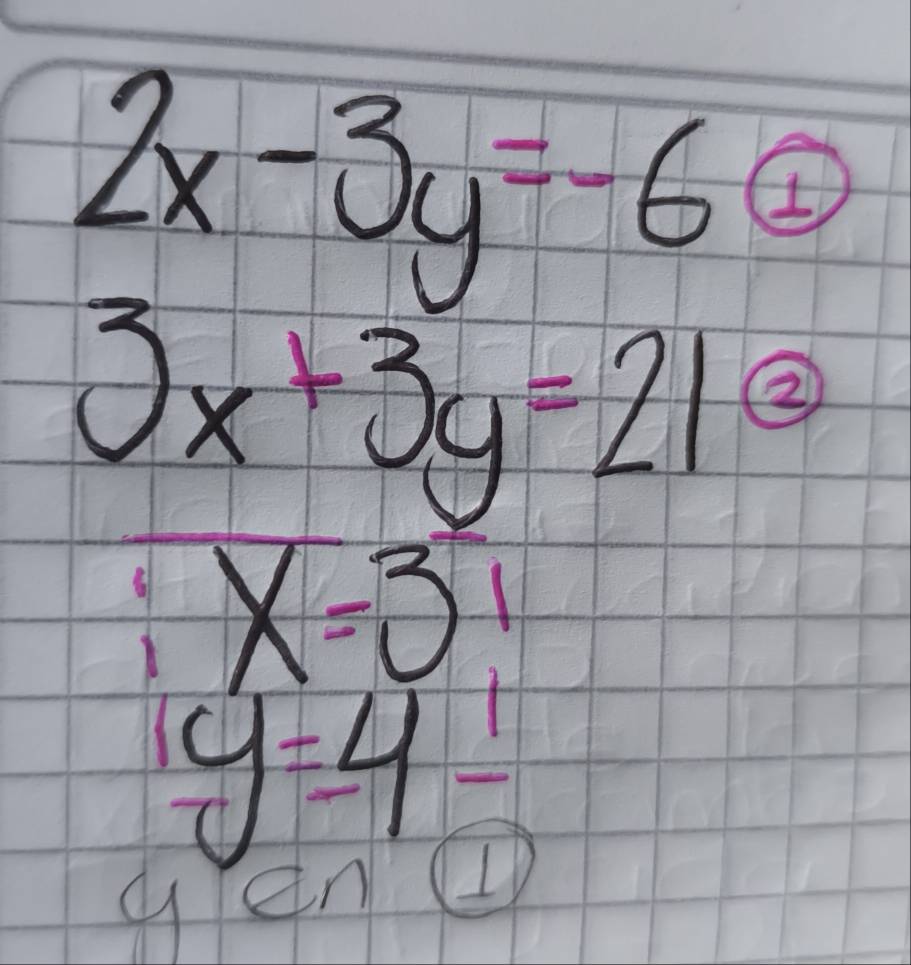 2x - 3y = - 6 ①
3x + 3y = 21 ②
x = 3
y = 4
y en ①